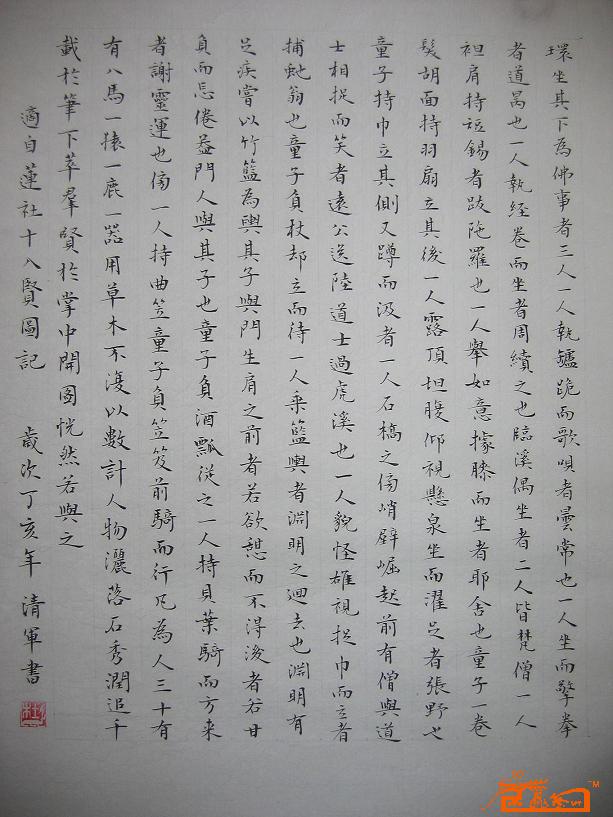 環坐其下為佛事者三人一人執鑪跪而歌唄者曇常也一人坐而擎拳
者道昺也一人執經卷而坐者周續之也臨溪偶坐者二人皆梵僧一人
袒肩持短錫者跋陁羅也一人舉如意據膝而坐者耶舍也童子一卷
髮胡面持羽扇立其後一人露頂坦腹仰視懸泉坐而濯足者張野也
童子持巾立其側又蹲而汲者一人石橋之傍峭壁崛起前有僧與道
士相捉而笑者遠公送陸道士過虎溪也一人貌怪雄視捉巾而立者
捕虵翁也童子負杖却立而待一人乘籃輿者淵明之迴去也淵明有
足疾嘗以竹籃為輿其子與門生肩之前者若欲憩而不得後者若甘
負而忘倦蓋門人與其子也童子負酒瓢從之一人持貝葉騎而方來
者謝靈運也傍一人持曲笠童子負笠笈前騎而行凡為人三十有
有八馬一猿一鹿一器用草木不復以數計人物灑落石秀潤追千
載於筆下萃羣賢於掌中開圖恍然若與之
適自蓮社十八賢圖記 歲次丁亥年 清軍書